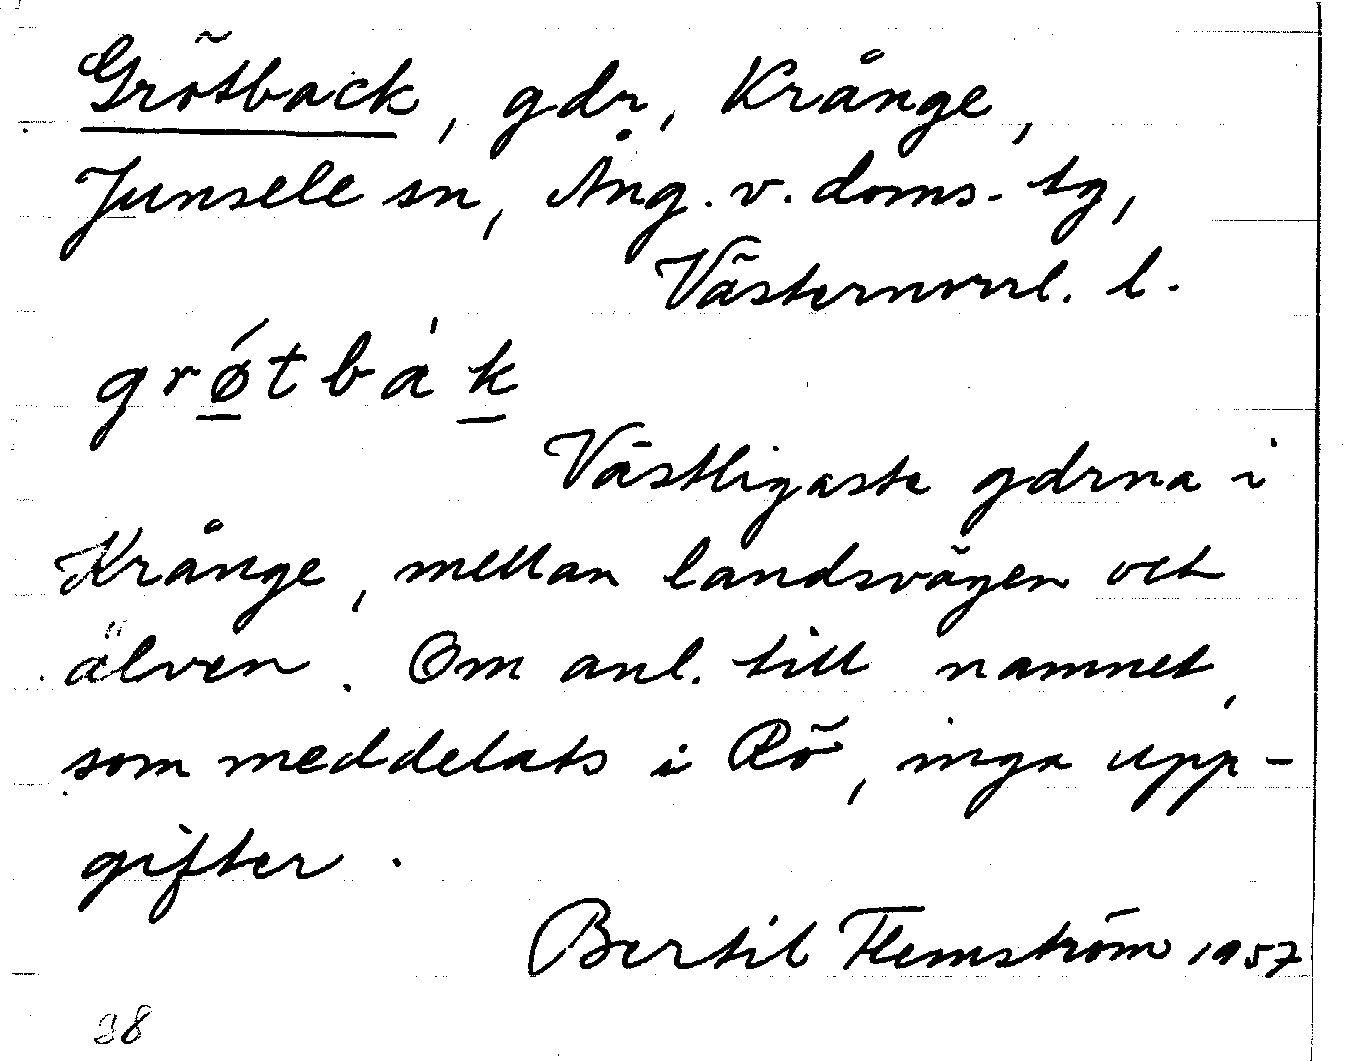 Grötback, gdr, Krånge,
Junsele sn, Ång. v. doms. tg,
Västernorrl. l.
grǿtbàk
Västligaste gdrna i
Krånge, mellan landsvägen och
älven. Om anl. till namnet,
som meddelats i Rö, inga upp-
gifter.
Bertil Flemström 1957
38